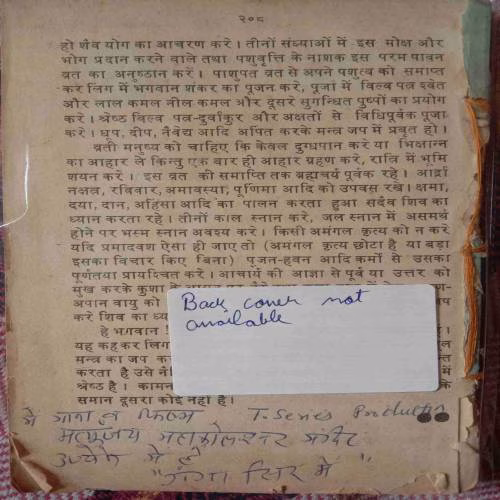 २०८
हो शैव योग का आचरण करे । तीनों संध्याओं में इस मोक्ष और
भोग प्रदान करने वाले तथा पशुवृत्ति के नाशक इस परम पावन
व्रत का अनुष्ठान करें । पाशुपत व्रत से अपने पशुत्व को समाप्त
कर लिंग में भगवान शंकर का पूजन करे, पूजा में विल्व पत्र श्वेत
और लाल कमल नील कमल और दूसरे सुगन्धित पुष्पों का प्रयोग
करें । श्रेष्ठ विल्व पत्र-दुर्वांकुर और अक्षतों से विधिपूर्वक पूजा
करे । धूप, दीप, नैवेद्य आदि अर्पित करके मन्त्र जप में प्रवृत हो ।
व्रती मनुष्य को चाहिए कि केवल दुग्धपान करे या भिक्षान्न
का आहार ले किन्तु एक बार ही आहार ग्रहण करे, रात्रि में भूमि
शयन करें । इस व्रत की समाप्ति तक ब्रह्मचर्य पूर्वक रहे । आर्द्रा
नक्षत्र, रविवार, अमावस्या, पूर्णिमा आदि को उपवास रखे । क्षमा,
दया, दान, अहिंसा आदि का पालन करता हुआ सदैव शिव का
ध्यान करता रहे । तीनों काल स्नान करे, जल स्नान में असमर्थ
होने पर भस्म स्नान अवश्य करे । किसी अमंगल कृत्य को न करे
यदि प्रमादवश ऐसा हो जाए तो (अमंगल कृत्य छोटा है या बड़ा
इसका विचार किए बिना) पूजन-हवन आदि कर्मों से उसका
पूर्णतया प्रायश्चित करें । आचार्य की आज्ञा से पूर्व या उत्तर को
मुख करके कुशा के
अपान वायु को
करें शिव का
हे भगवान !
यह कहकर लिंग
मन्त्र का जप
करता है उसे
श्रेष्ठ है । के
समान दूसरा कोई नहीं है ।
Back cover not
available
मे T. Series Production
मंदिर
उज्जैन मे
"गंगा सिर में"